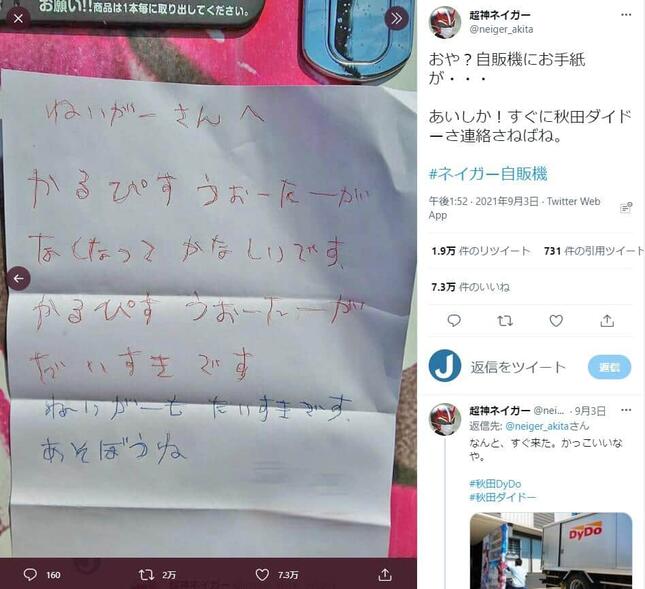 お願い!!商品は1本毎に取り出してください。
ねいがーさんへ
かるぴすうぉーたーが
なくなってかなしいです。
かるぴすうぉーたーが
だいすきです
ねいがーもだいすきです。
あそぼうね
160
2万
7.3万
超神ネイガー
@neiger_akita
おや？自販機にお手紙
が・・・
あいしか！すぐに秋田ダイド
ーさ連絡さねばね。
#ネイガー自販機
午後1:52 · 2021年9月3日 · Twitter Web
App
1.9万 件のリツイート 731 件の引用ツイート
7.3万 件のいいね
返信をツイート
返信
超神ネイガー @nei... · 9月3日
返信先: @neiger_akitaさん
なんと、すぐ来た。かっこいいな
や。
#秋田DyDo
#秋田ダイドー
DyDo